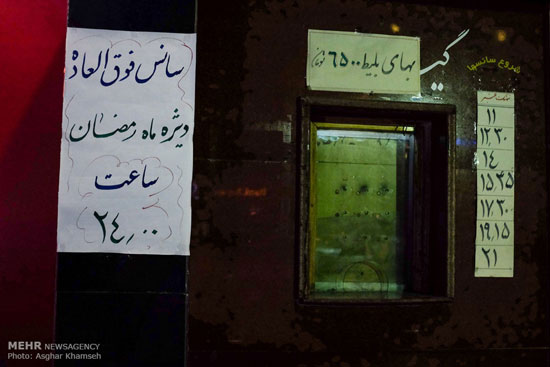 سانس فوق العاده
ویژه ماه رمضان
ساعت
۲۴٫۰۰
بهای بلیط ۶۵۰۰ تومان
گیـ
شروع سانسها
۱۱
۱۲٫۳۰
۱۴
۱۵٫۴۵
۱۷٫۳۰
۱۹٫۱۵
۲۱
MEHR NEWSAGENCY
Photo: Asghar Khamseh